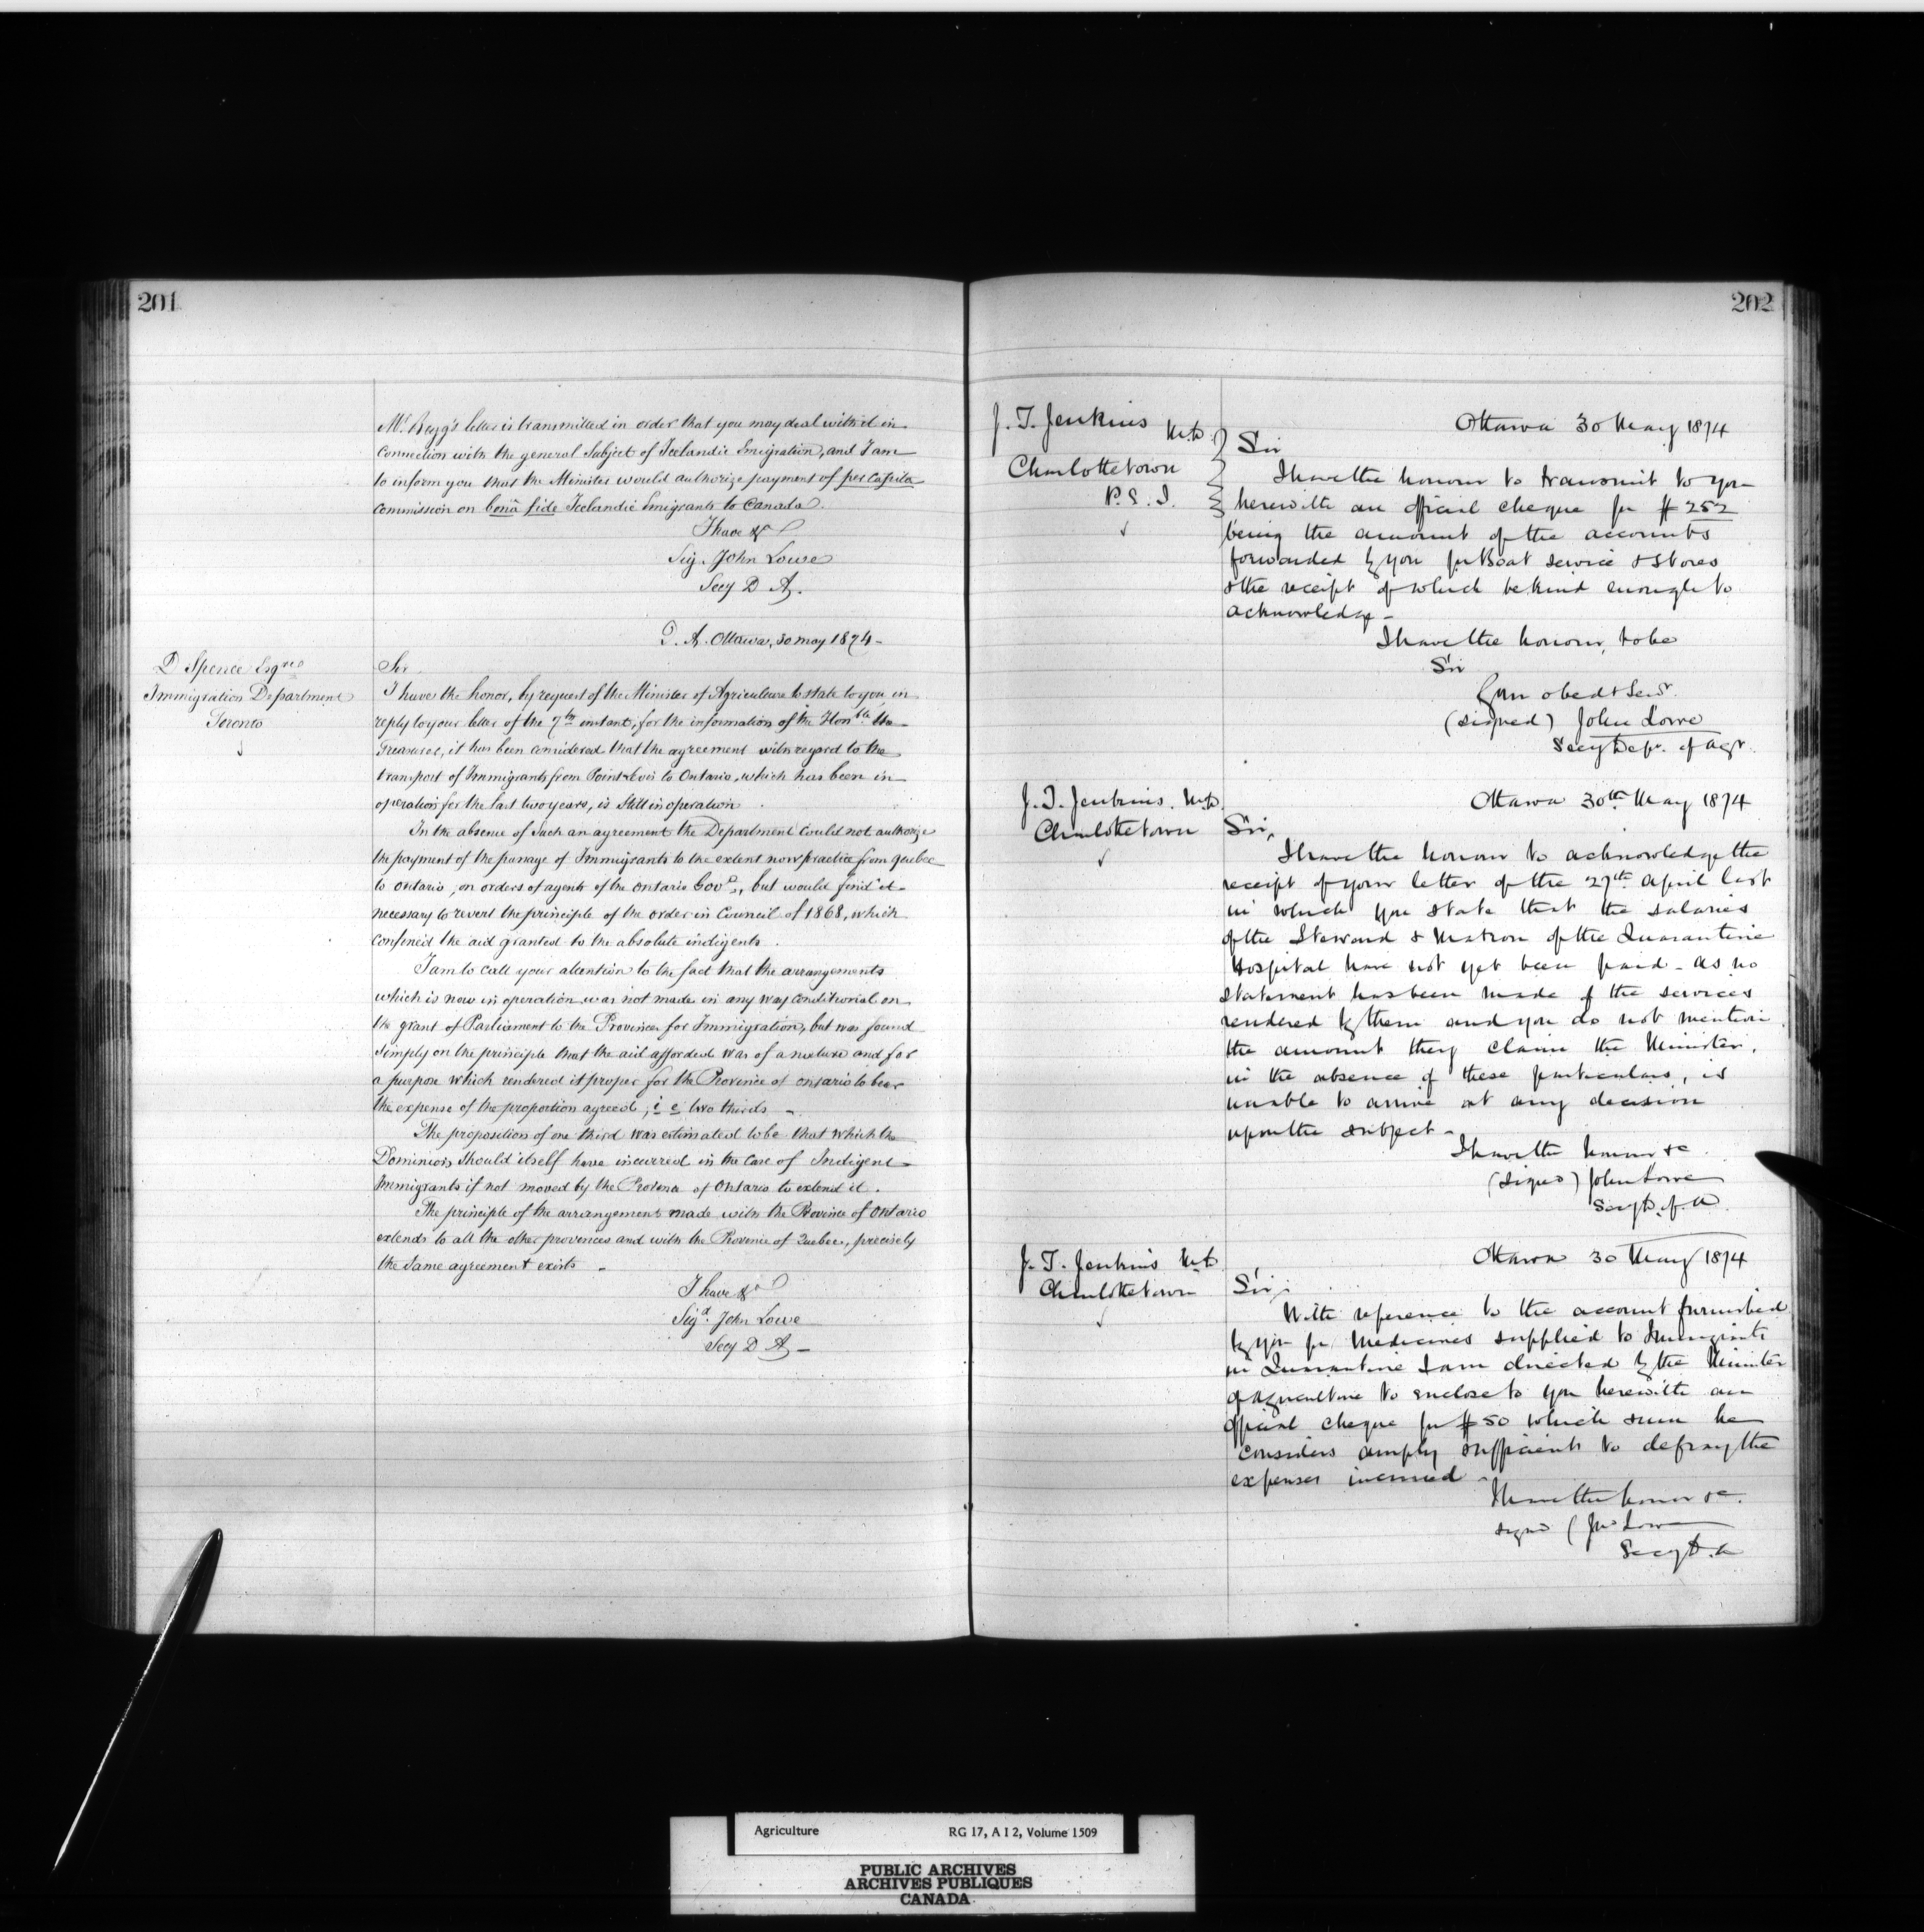 201
Mr. Begg's letter is transmitted in order that you may deal with it in
connection with the general Subject of Icelandic Emigration, and I am
to inform you that the Minister would authorize payment of per capita
commission on bonâ fide Icelandic Emigrants to Canada.
I have &c
Sig. John Lowe
Secy D A.
D. A. Ottawa, 30 May 1874 -
D Spence Esqre
Immigration Department
Toronto
Sir
I have the honor, by request of the Minister of Agriculture to state to you in
reply to your letter of the 7th instant, for the information of the Honble the
Treasurer, it has been considered that the agreement with regard to the
transport of Immigrants from Point Levis to Ontario, which has been in
operation for the last two years, is still in operation.
In the absence of such an agreement the Department could not authorize
the payment of the passage of Immigrants to the extent now practice from Quebec
to Ontario, on orders of agents of the Ontario Govt, but would find it
necessary to revert the principle of the order in Council of 1868, which
confined the aid granted to the absolute indigents.
I am to call your attention to the fact that the arrangements
which is now in operation was not made in any way conditional on
the grant of Parliament to the Provinces for Immigration, but was found
simply on the principle that the aid afforded was of a nature and for
a purpose which rendered it proper for the Province of Ontario to bear
the expense of the proportion agreed, i e two thirds -
The proposition of one third was estimated to be that which the
Dominion should itself have incurred in the case of Indigent
Immigrants if not moved by the Province of Ontario to extend it.
The principle of the arrangement made with the Province of Ontario
extends to all the other provinces and with the Province of Quebec, precisely
the same agreement exists -
I have &c
Sigd. John Lowe
Secy D A -
202
J. T. Jenkins M.D.
Charlottetown
P. E. I.
Ottawa 30 May 1874
Sir
I have the honour to transmit to you
herewith an official cheque for $252
being the amount of the accounts
forwarded by you for Boat service & Stores
& the receipt of which be kind enough to
acknowledge -
I have the honour, to be
Sir
Your obedt Servt.
(signed) John Lowe
Secy Dept. of Agr.
J. T. Jenkins. M.D.
Charlottetown
Ottawa 30th May 1874
Sir,
I have the honour to acknowledge the
receipt of your letter of the 27th April last
in which you state that the salaries
of the Steward & Matron of the Quarantine
Hospital have not yet been paid - as no
statement has been made of the services
rendered by them and you do not mention
the amount they claim the Minister,
in the absence of these particulars, is
unable to arrive at any decision
upon the subject -
I have the honour &c
(Signed) John Lowe
Secy D. of A.
J. T. Jenkins M.D.
Charlottetown
Ottawa 30 May 1874
Sir,
With reference to the account furnished
by you for Medicines supplied to Immigrants
in Quarantine I am directed by the Minister
of Agriculture to enclose to you herewith an
official cheque for $50 which sum he
considers amply sufficient to defray the
expenses incurred -
I have the honour &c.
signed (Jno Lowe
Secy D. A
Agriculture RG 17, A I 2, Volume 1509
PUBLIC ARCHIVES
ARCHIVES PUBLIQUES
CANADA